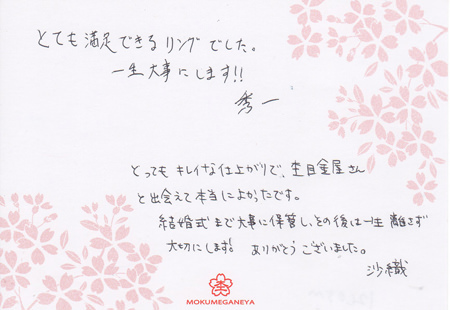 とても満足できるリングでした。
一生大事にします!!
秀一
とってもキレイな仕上がりで、杢目金屋さん
と出会えて本当によかったです。
結婚式まで大事に保管し、その後は一生離さず
大切にします。ありがとうございました。
沙織
杢
MOKUMEGANEYA